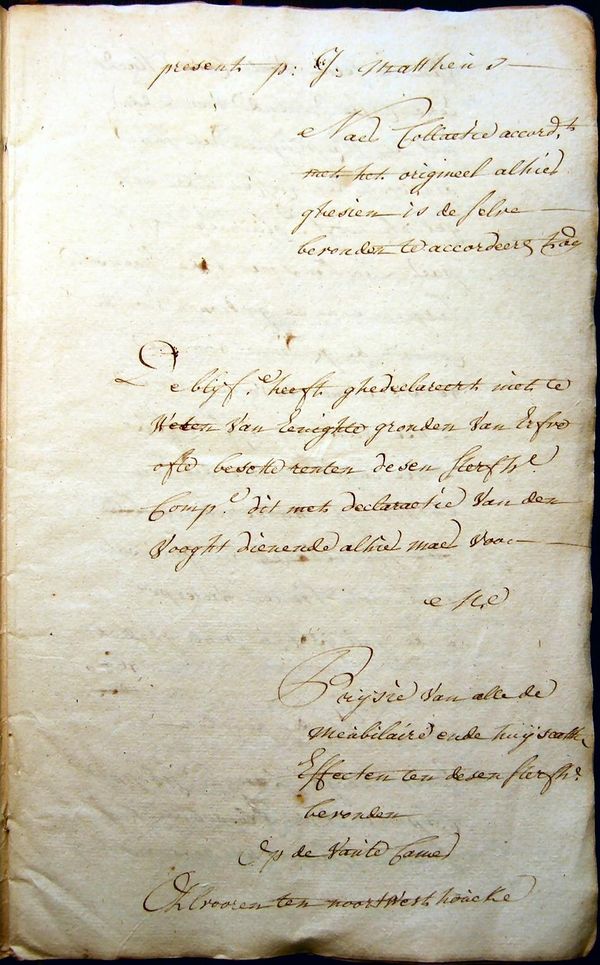 present p: J. Mattheus
Naer Collactie accord.t
met het origineel alhier
ghesien is de selve
bevonden t'accorderen
De blijf.e heeft ghedeclareert niet te
Weten Van Eenighte gronden Van Erfve
ofte besette renten desen sterfh.e
Comp.e dit met declaractie Van den
Vooght dienende alhier maer voor
Prijsie Van alle de
Meubilaire ende huijscatth.
Effecten ten desen sterfh.e
bevonden
Op de Vaute Camer
Chvooren ten noortwest houcke